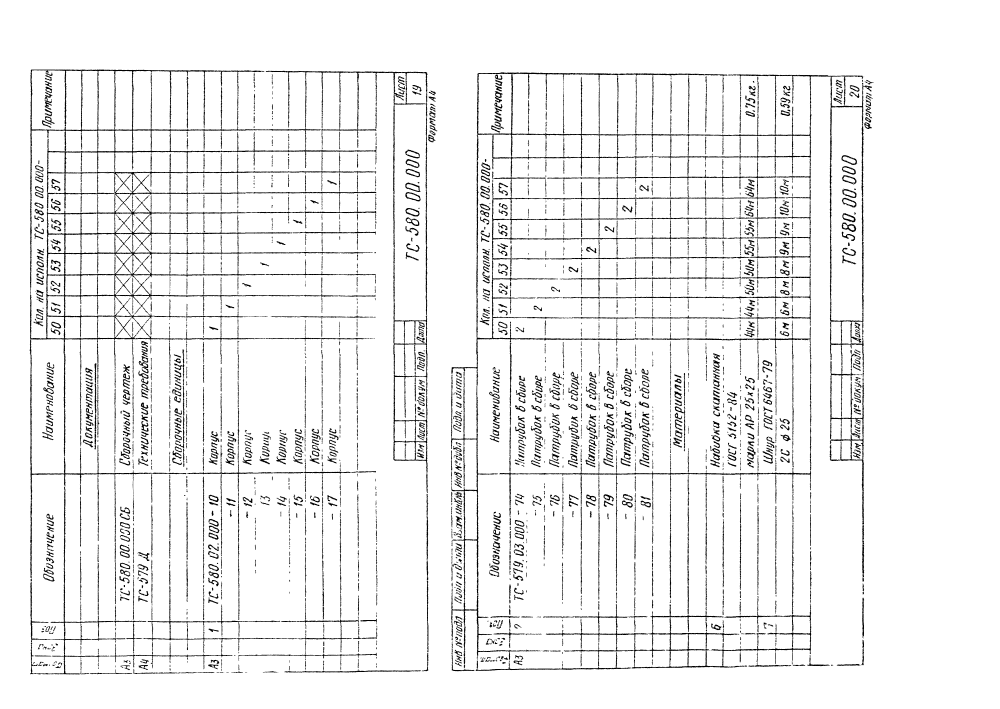 Формат Зона Поз. Обозначение Наименование Кол. на исполн. ТС-580.00.000- Примечание
50 51 52 53 54 55 56 57
Документация
А3 ТС-580.00.000 СБ Сборочный чертеж
А4 ТС-579 Д Технические требования
Сборочные единицы
А3 1 ТС-580.02.000 - 10 Корпус 1
- 11 Корпус 1
- 12 Корпус 1
13 Корпус 1
- 14 Корпус 1
- 15 Корпус 1
- 16 Корпус 1
- 17 Корпус 1
Изм Лист № докум. Подп. Дата
ТС-580.00.000
Лист
19
Формат А4
Инв № подл Подп и дата Взам инв № Инв № дубл Подп. и дата
Формат Зона Поз. Обозначение Наименование Кол. на исполн. ТС-580.00.000- Примечание
50 51 52 53 54 55 56 57
А3 2 ТС-579.03.000 - 74 Патрубок в сборе 2
- 75 Патрубок в сборе 2
- 76 Патрубок в сборе 2
- 77 Патрубок в сборе 2
- 78 Патрубок в сборе 2
- 79 Патрубок в сборе 2
- 80 Патрубок в сборе 2
- 81 Патрубок в сборе 2
Материалы
6 Набивка скатанная
ГОСТ 5152-84
марки АР 25х25 44м 44м 50м 50м 55м 55м 64м 64м 0,75 кг.
7 Шнур ГОСТ 6467-79
2С ф 25 6м 6м 8м 8м 9м 9м 10м 10м 0,59 кг.
Изм Лист № докум Подп Дата
ТС-580.00.000
Лист
20
Формат А4